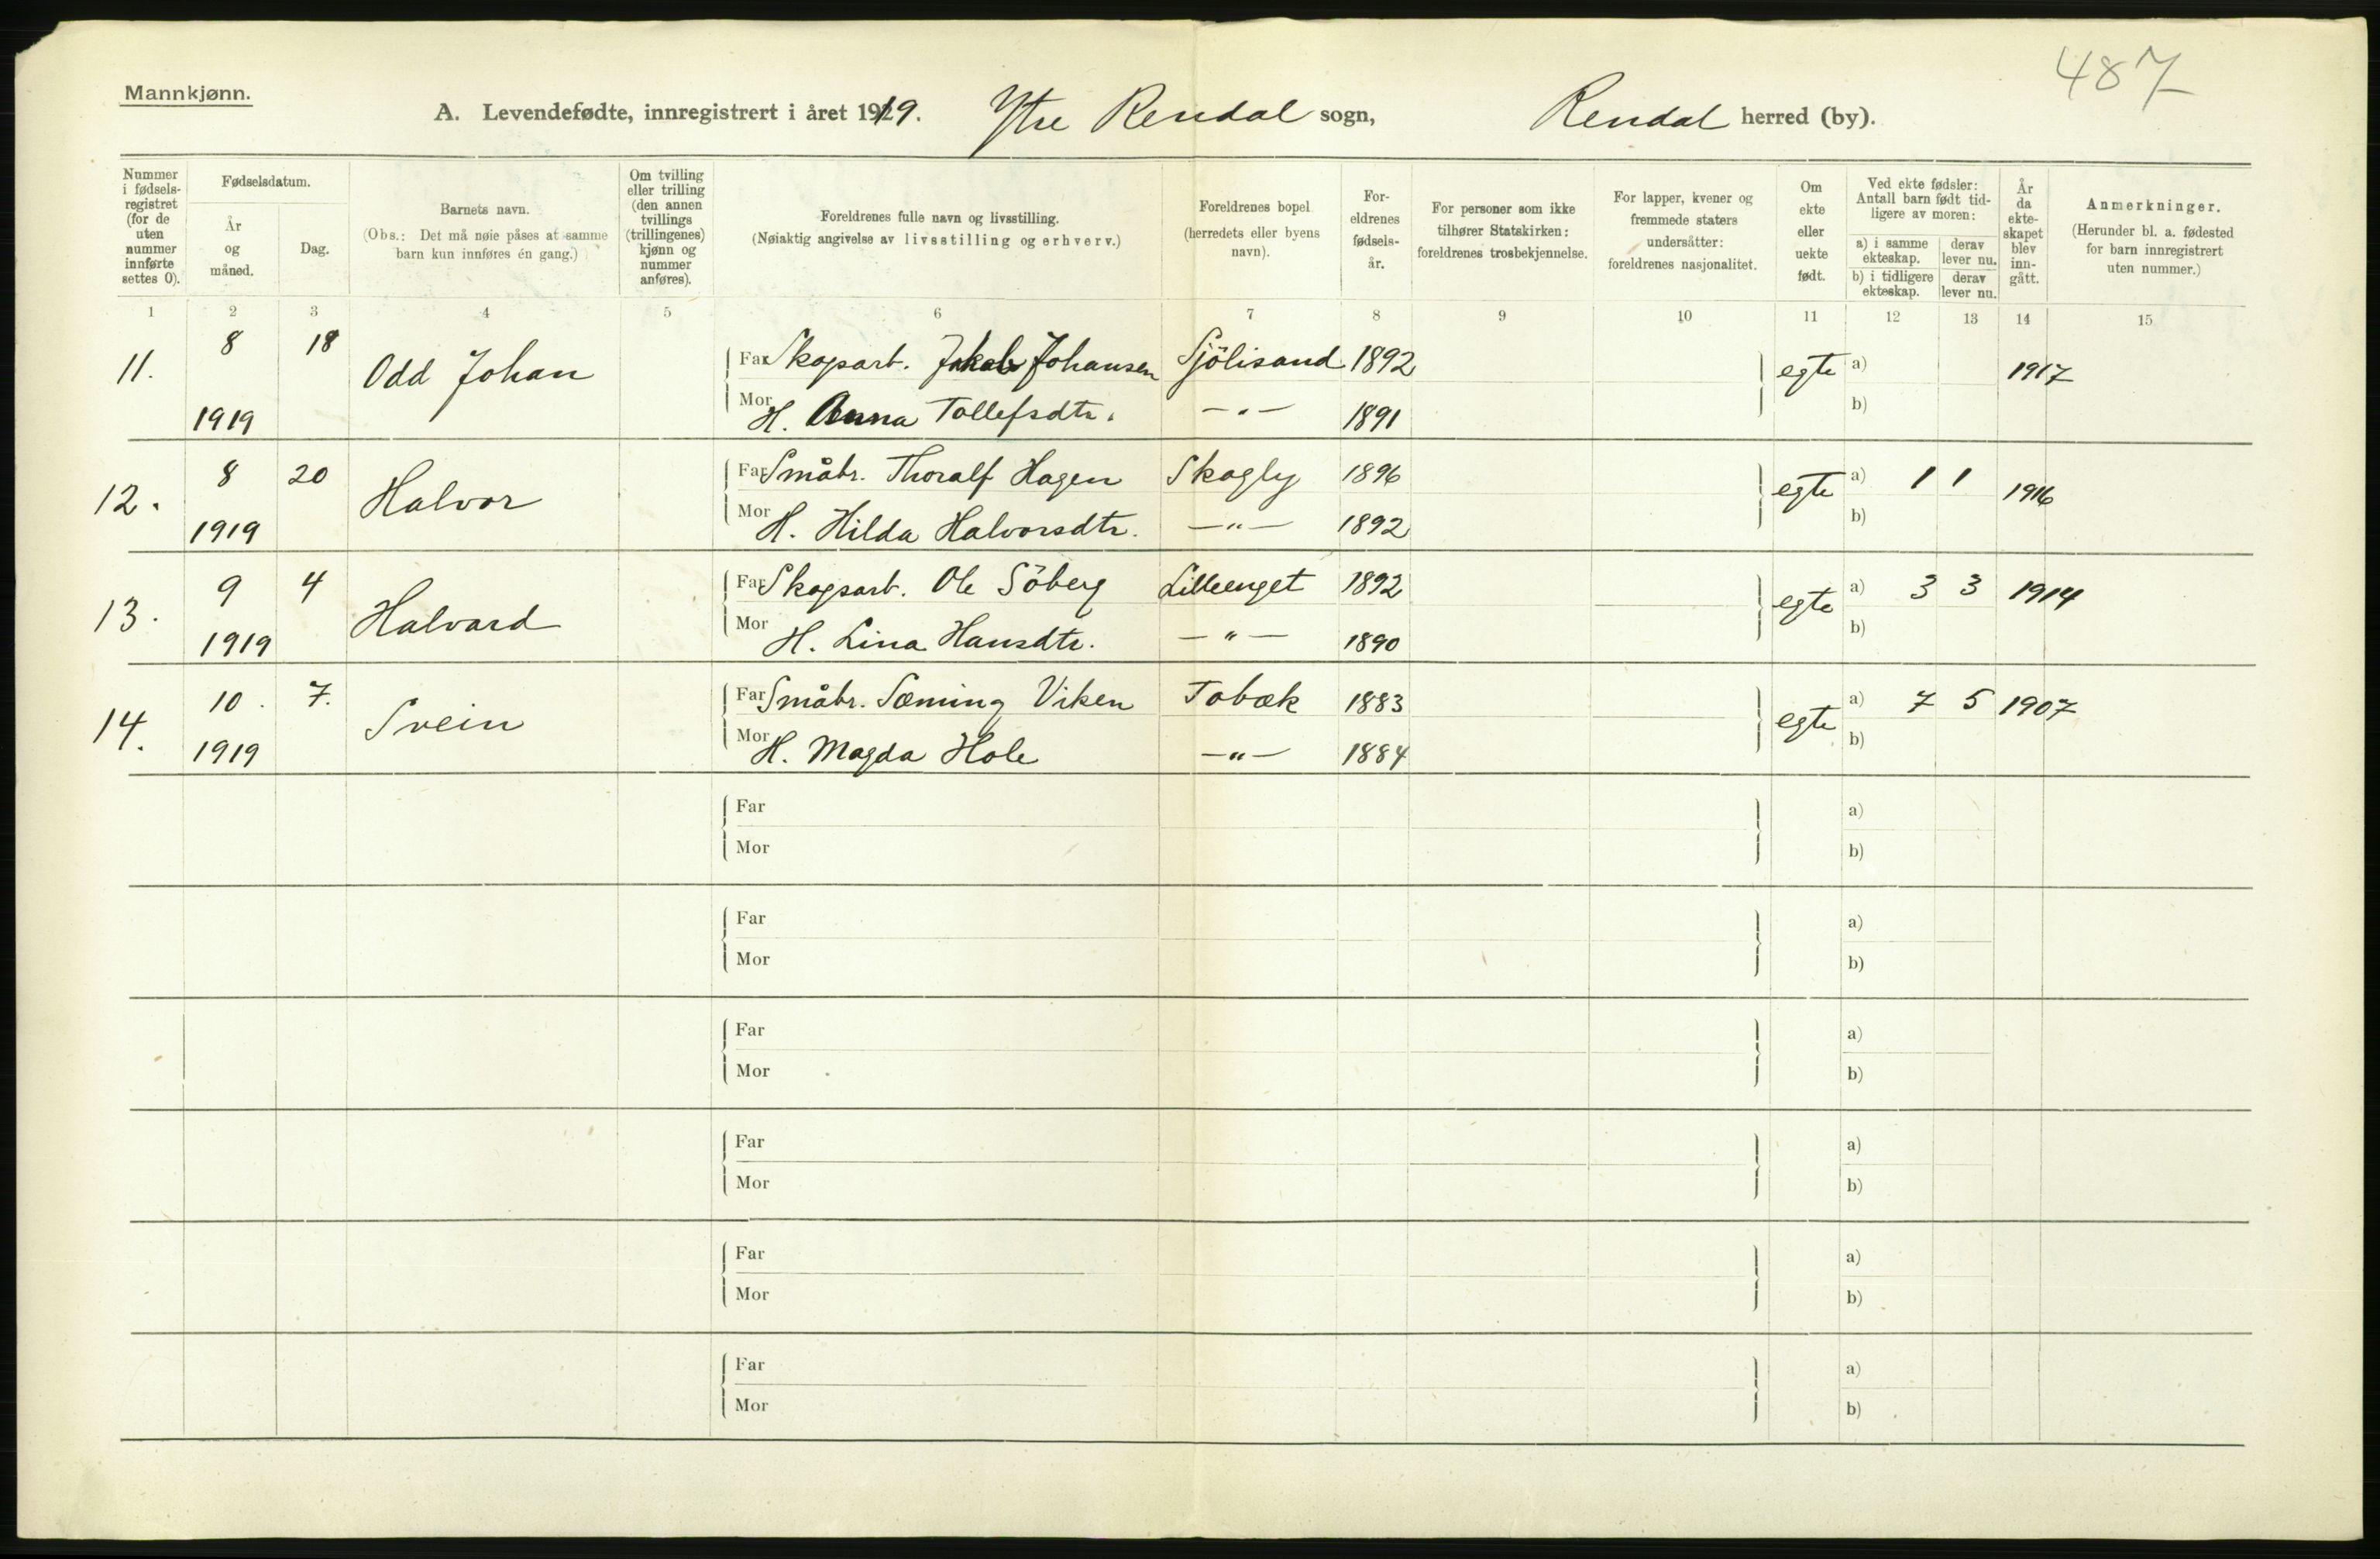 487
Mannkjønn.
A. Levendefødte, innregistrert i året 1919. Ytre Rendal sogn, Rendal herred (by).
Nummer i fødselsregistret (for de uten nummer innførte settes 0).
Fødselsdatum.
År og måned.
Dag.
Barnets navn.
(Obs.: Det må nøie påses at samme barn kun innføres én gang.)
Om tvilling eller trilling (den annen tvillings (trillingenes) kjønn og nummer anføres).
Foreldrenes fulle navn og livsstilling.
(Nøiaktig angivelse av livsstilling og erhverv.)
Foreldrenes bopel (herredets eller byens navn).
Foreldrenes fødselsår.
For personer som ikke tilhører Statskirken: foreldrenes trosbekjennelse.
For lapper, kvener og fremmede staters undersåtter: foreldrenes nasjonalitet.
Om ekte eller uekte født.
Ved ekte fødsler: Antall barn født tidligere av moren:
a) i samme ekteskap.
derav lever nu.
b) i tidligere ekteskap.
derav lever nu.
År da ekteskapet blev inngått.
Anmerkninger.
(Herunder bl. a. fødested for barn innregistrert uten nummer.)
1 2 3 4 5 6 7 8 9 10 11 12 13 14 15
11. 8 18 Odd Johan Far Skogsarb. Jakob Johansen Sjölisand 1892 egte a) 1917
1919 Mor H. Anna Tollefsdtr. —"— 1891 b)
12. 8 20 Halvor Far Småbr. Thoralf Hagen Skogly 1896 egte a) 1 1 1916
1919 Mor H. Hilda Halvorsdtr. —"— 1892 b)
13. 9 4 Halvard Far Skogsarb. Ole Söberg Lilleenget 1892 egte a) 3 3 1914
1919 Mor H. Lina Hansdtr. —"— 1890 b)
14. 10. 7. Svein Far Småbr. Sæming Viken Tobæk 1883 egte a) 7 5 1907
1919 Mor H. Magda Hole —"— 1884 b)
Far a)
Mor b)
Far a)
Mor b)
Far a)
Mor b)
Far a)
Mor b)
Far a)
Mor b)
Far a)
Mor b)